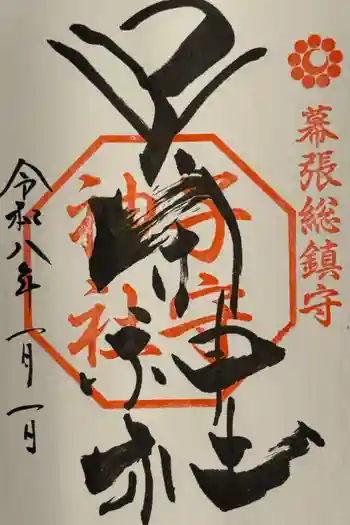 幕張総鎮守
子守
神社
子守神社
令和八年一月一日